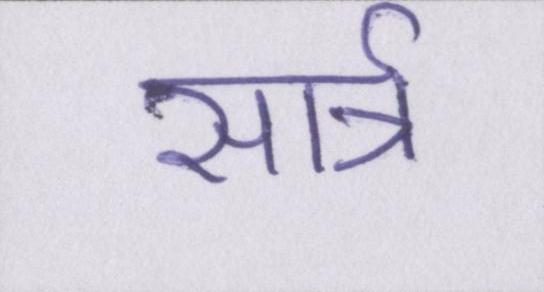 सार्त्र